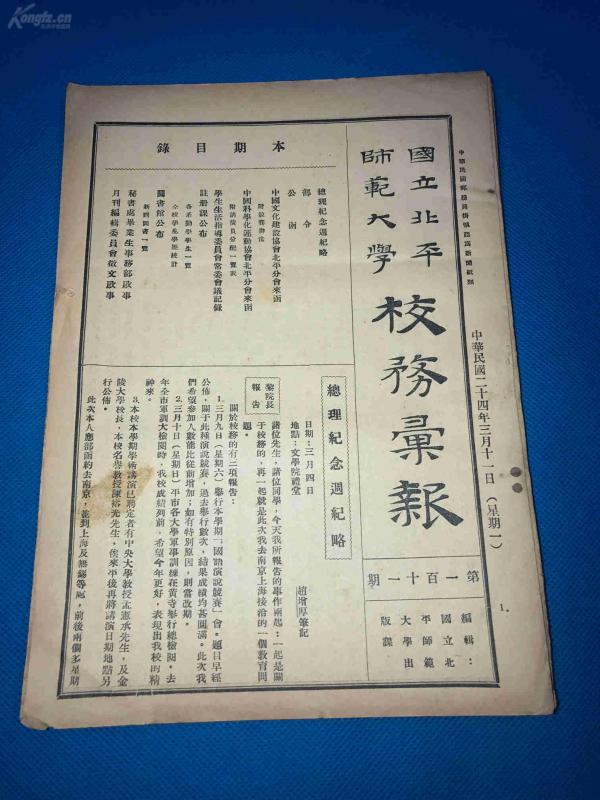 Kongfz.cn
中華民國郵政局掛號認為新聞紙類
中華民國二十四年三月十一日（星期一）
國立北平
師範大學
校務彙報
第一百十一期
編輯：
國立北
平師範
大學出
版課．
1.
本期目錄
總理紀念週紀略
部令
公函
中國文化建設協會北平分會來函
中國科學化運動協會北平分會來函
附講演員分配一覽表
學生生活指導委員會常委會議記錄
註册課公布
各系勤學學生一覽
全校學生學歷統計
圖書館公布
新到圖書一覽
秘書處畢業生事務部啟事
月刊編輯委員會徵文啟事
總理紀念週紀略
日期：三月四日
地點：文學院禮堂
趙增厚筆記
黎院長
報告
諸位先生，諸位同學，今天我所報告的事件兩起：一起是關
于校務的，再一起就是此次我去南京上海接洽的一個教育問
題。
關於校務的有二項報告：
1.三月九日（星期六）舉行本學期「國語演說競賽」會。題目早經
公佈，關于此種演說競賽，過去舉行數次，結果成績均甚圓滿。此次我
們希望參加人數能比從前增加；如有特別原因，則當改期。
2.三月十日（星期日）平市各大學軍事訓練在黃寺舉行總檢閱。去
年全市軍訓大檢閱時，我校成績列前，希望今年更好，表現出我校的精
神來。
3.本校本學期學術講演已聘定者有中央大學教授孟憲承先生，及金
陵大學校長，本校名譽教授陳裕光先生，俟來平後再將講演日期地點另
行公佈。
此次本人應部函約去南京，並到上海及無錫等處，前後兩個多星期